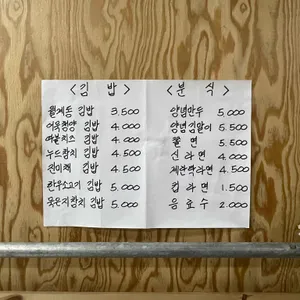 <김 밥>
월계동 김밥 3,500
어묵청양 김밥 4,000
더블치즈 김밥 4,000
누드참치 김밥 4,500
진미채 김밥 4,500
한우소고기 김밥 5,000
묵은지참치 김밥 5,000
<분 식>
양념만두 5,000
양념 김말이 5,500
쫄 면 5,500
신 라 면 4,000
계란탁라면 4,500
컵 라 면 1,500
음 료 수 2,000